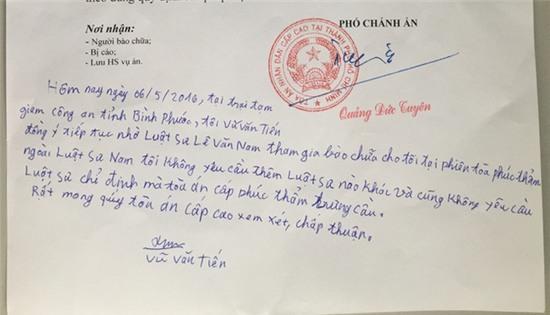 PHÓ CHÁNH ÁN
Nơi nhận:
- Người bào chữa;
- Bị cáo;
- Lưu HS vụ án.
TÒA ÁN NHÂN DÂN CẤP CAO TẠI THÀNH PHỐ HỒ CHÍ MINH
Quảng Đức Tuyên
Hôm nay ngày 06/5/2016, tại trại tạm
giam công an tỉnh Bình Phước, tôi Vũ Văn Tiến
đồng ý tiếp tục nhờ Luật sư Lê Văn Nam tham gia bào chữa cho tôi tại phiên tòa phúc thẩm
ngoài Luật sư Nam tôi không yêu cầu thêm Luật sư nào khác và cũng không yêu cầu
Luật sư chỉ định mà tòa án cấp phúc thẩm trưng cầu.
Rất mong quý tòa án cấp cao xem xét, chấp thuận.
Vũ Văn Tiến